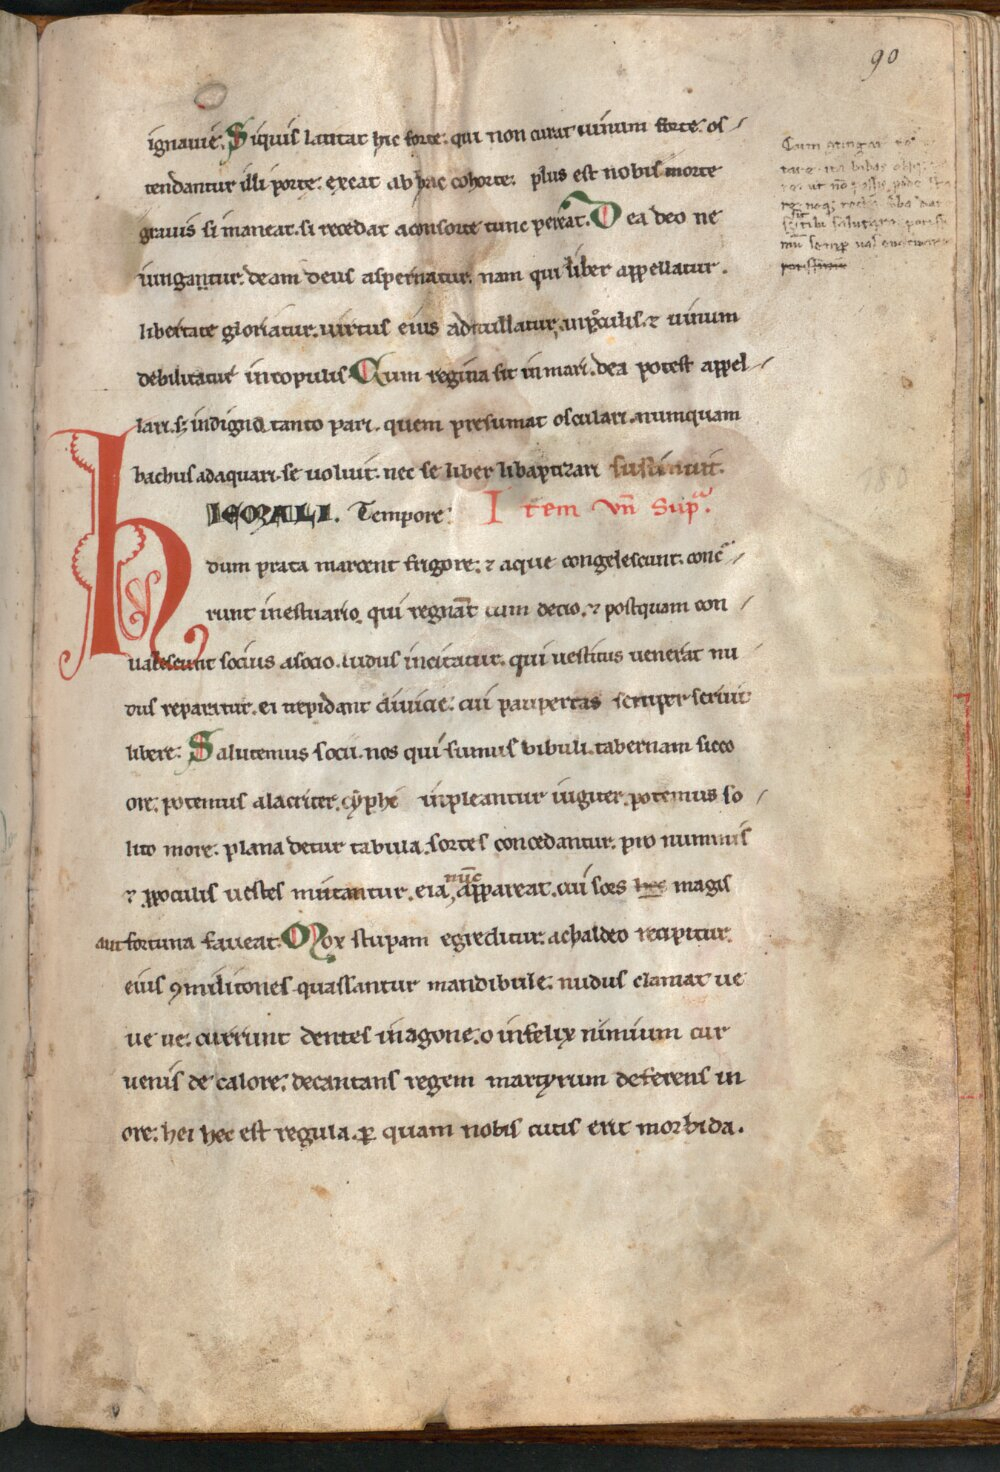 90
ignauie. Siquis latitat hic forte. qui non curat uinum forte. os
tendantur illi porte. exeat ab hac cohorte. plus est nobis morte
grauis si maneat. si recedat a consorte tunc pereat. Dea deo ne
iungantur. deam deus aspernatur. nam qui liber appellatur.
libertate gloriatur. uirtus eius et uinum
debilitatur in copulis. Cum regina sit in mari. dea potest appel
lari. sꝫ indigna tanto pari. quem presumat osculari. numquam
bachus adaquari. se uoluit. nec se liber libaptizari sustinuit.
HIEMALI. Tempore. Item vn̄ supᵃ.
dum prata marcent frigore. ⁊ aque congelescunt. conc
runt in estuario. qui regnāt cum decio. ⁊ postquam con
ualescunt socius a socio. ludus incitatur. qui uestitus uenerat nu
dus reparatur. ei trepidant diuicie. cui paupertas semper seruit
libere. Salutemus socii. nos qui sumus bibuli. tabernam sicco
ore. potemus alacriter. cyphi inpleantur iugiter. potemus so
lito more. plana detur tabula. sortes concedantur. pro nummis
⁊ p̱ poculis uestes mittantur. eia nūc appareat. cui soes hec magis
aut fortuna faueat. Mox stupam egreditur. a chaldeo recipitur.
eius ꝯmilitones. quassantur mandibule. nudus clamat ue
ue ue. currunt dentes in agone. o infelix nimium cur
uenis de calore. decantans regem martyrum deferens in
ore. hei hec est regula. ꝑ quam nobis cutis erit morbida.